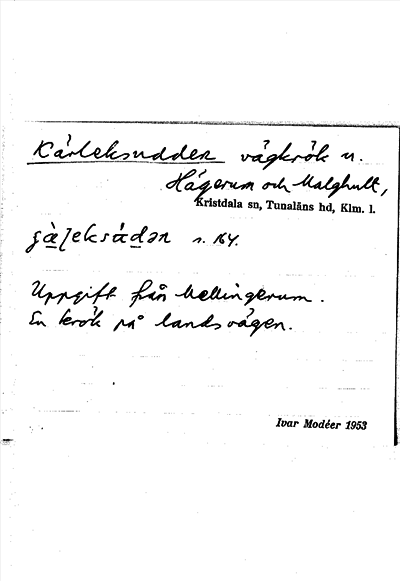 Kärleksudden vägkrök n.
Hägerum och Malghult,
Kristdala sn, Tunaläns hd, Klm. l.
s. 164.
Uppgift från Mellingerum.
En krök på landsvägen.
Ivar Modéer 1953